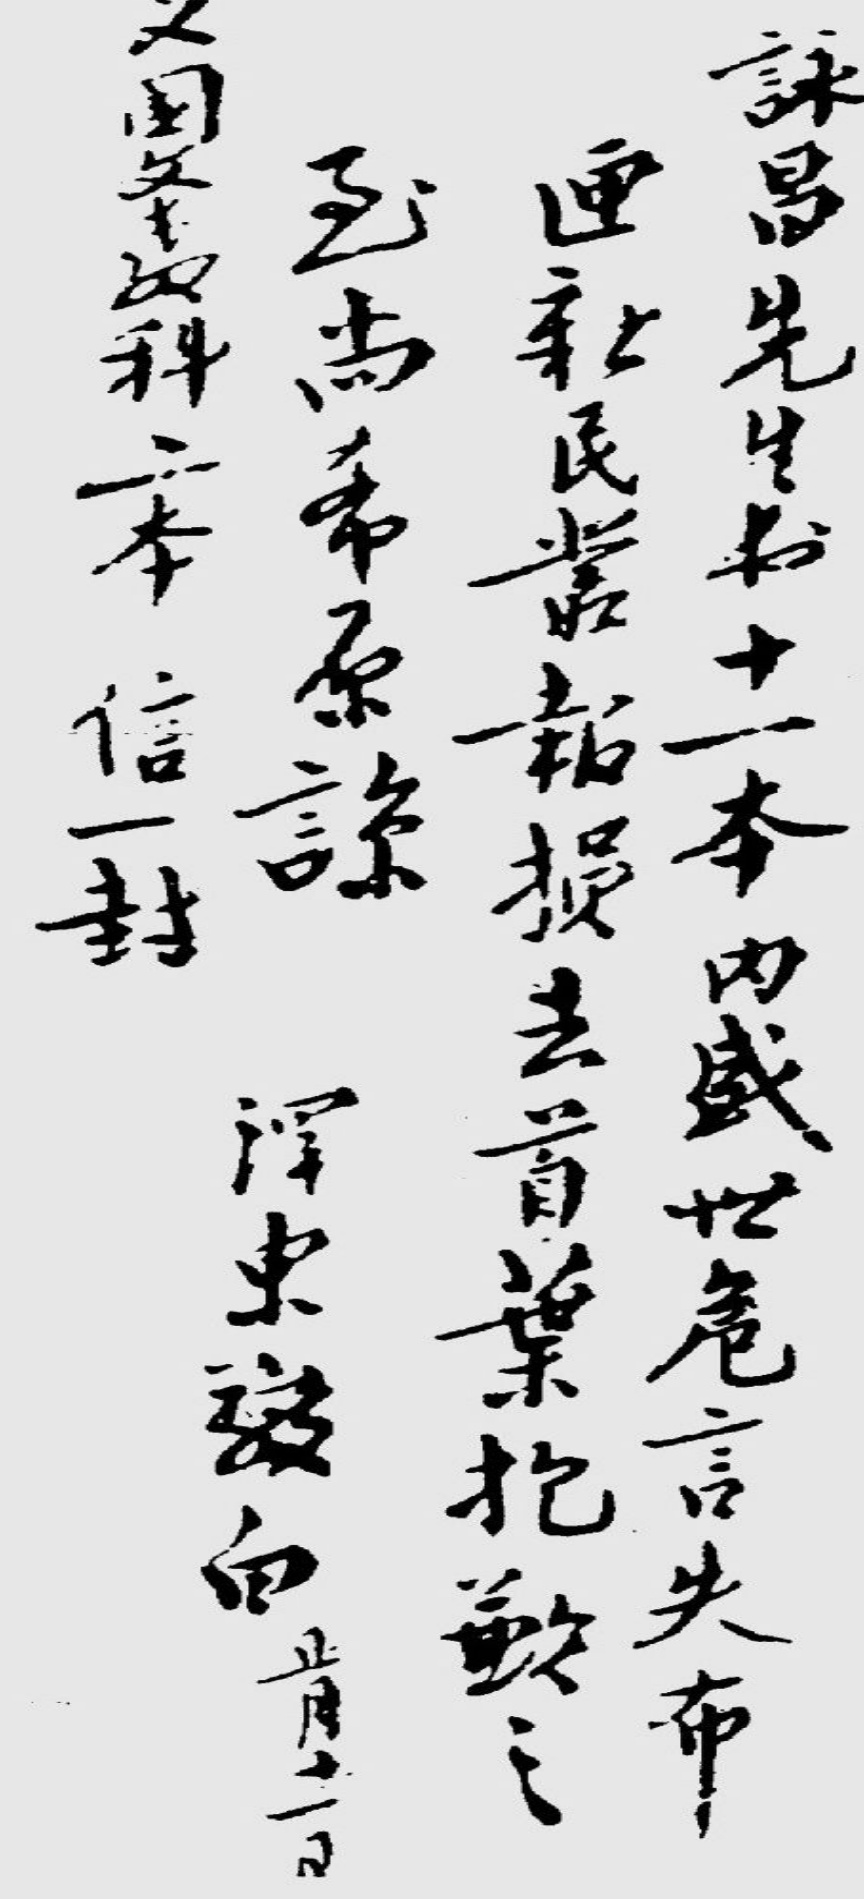 詠昌先生書十一本內盛世危言失布
匣新民叢報損去首葉抱歉之
至尚希原諒
澤東敬白 正月十一日
又國文教科二本 信一封